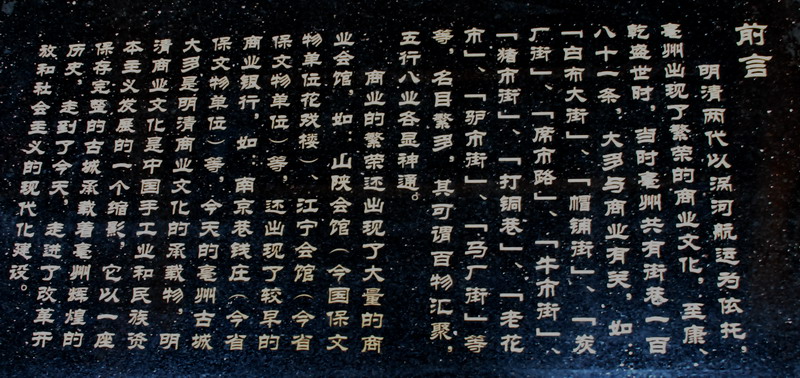 前言
明清两代以涡河航运为依托，
亳州出现了繁荣的商业文化。至康、
乾盛世时，当时亳州共有街巷一百
八十一条，大多与商业有关，如：
「白布大街」、「帽铺街」、「炭
厂街」、「席市路」、「牛市街」、
「猪市街」、「打铜巷」、「老花
市」、「驴市街」、「马厂街」等
等，名目繁多，真可谓百物汇聚，
五行八业各显神通。
商业的繁荣还出现了大量的商
业会馆，如：山陕会馆（今国保文
物单位花戏楼）、江宁会馆（今省
保文物单位）等，还出现了较早的
商业银行，如：南京巷钱庄（今省
保文物单位）等，今天的亳州古城
大多是明清商业文化的承载物，明
清商业文化是中国手工业和民族资
本主义发展的一个缩影，它以一座
保存完整的古城承载着亳州辉煌的
历史，走到了今天，走进了改革开
放和社会主义的现代化建设。